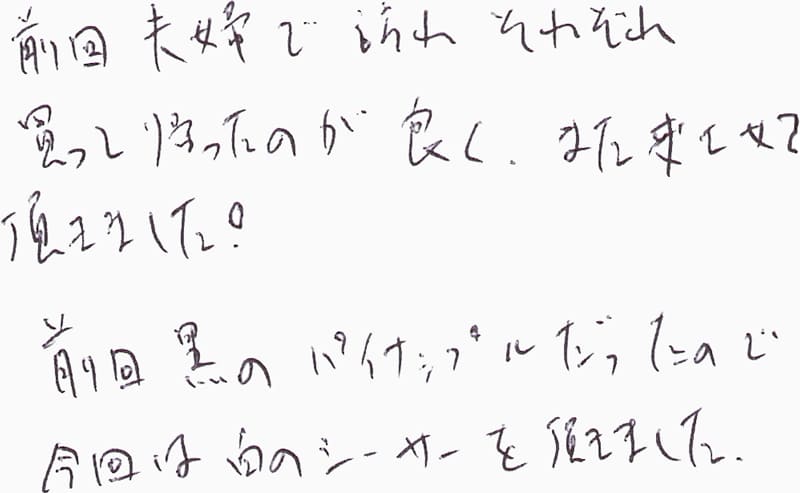 前回 夫婦で 訪れ それぞれ
買って帰ったのが 良く、また来させて
頂きました!
前回 黒の パイナップルだったので
今回は 白のシーサーを頂きました。